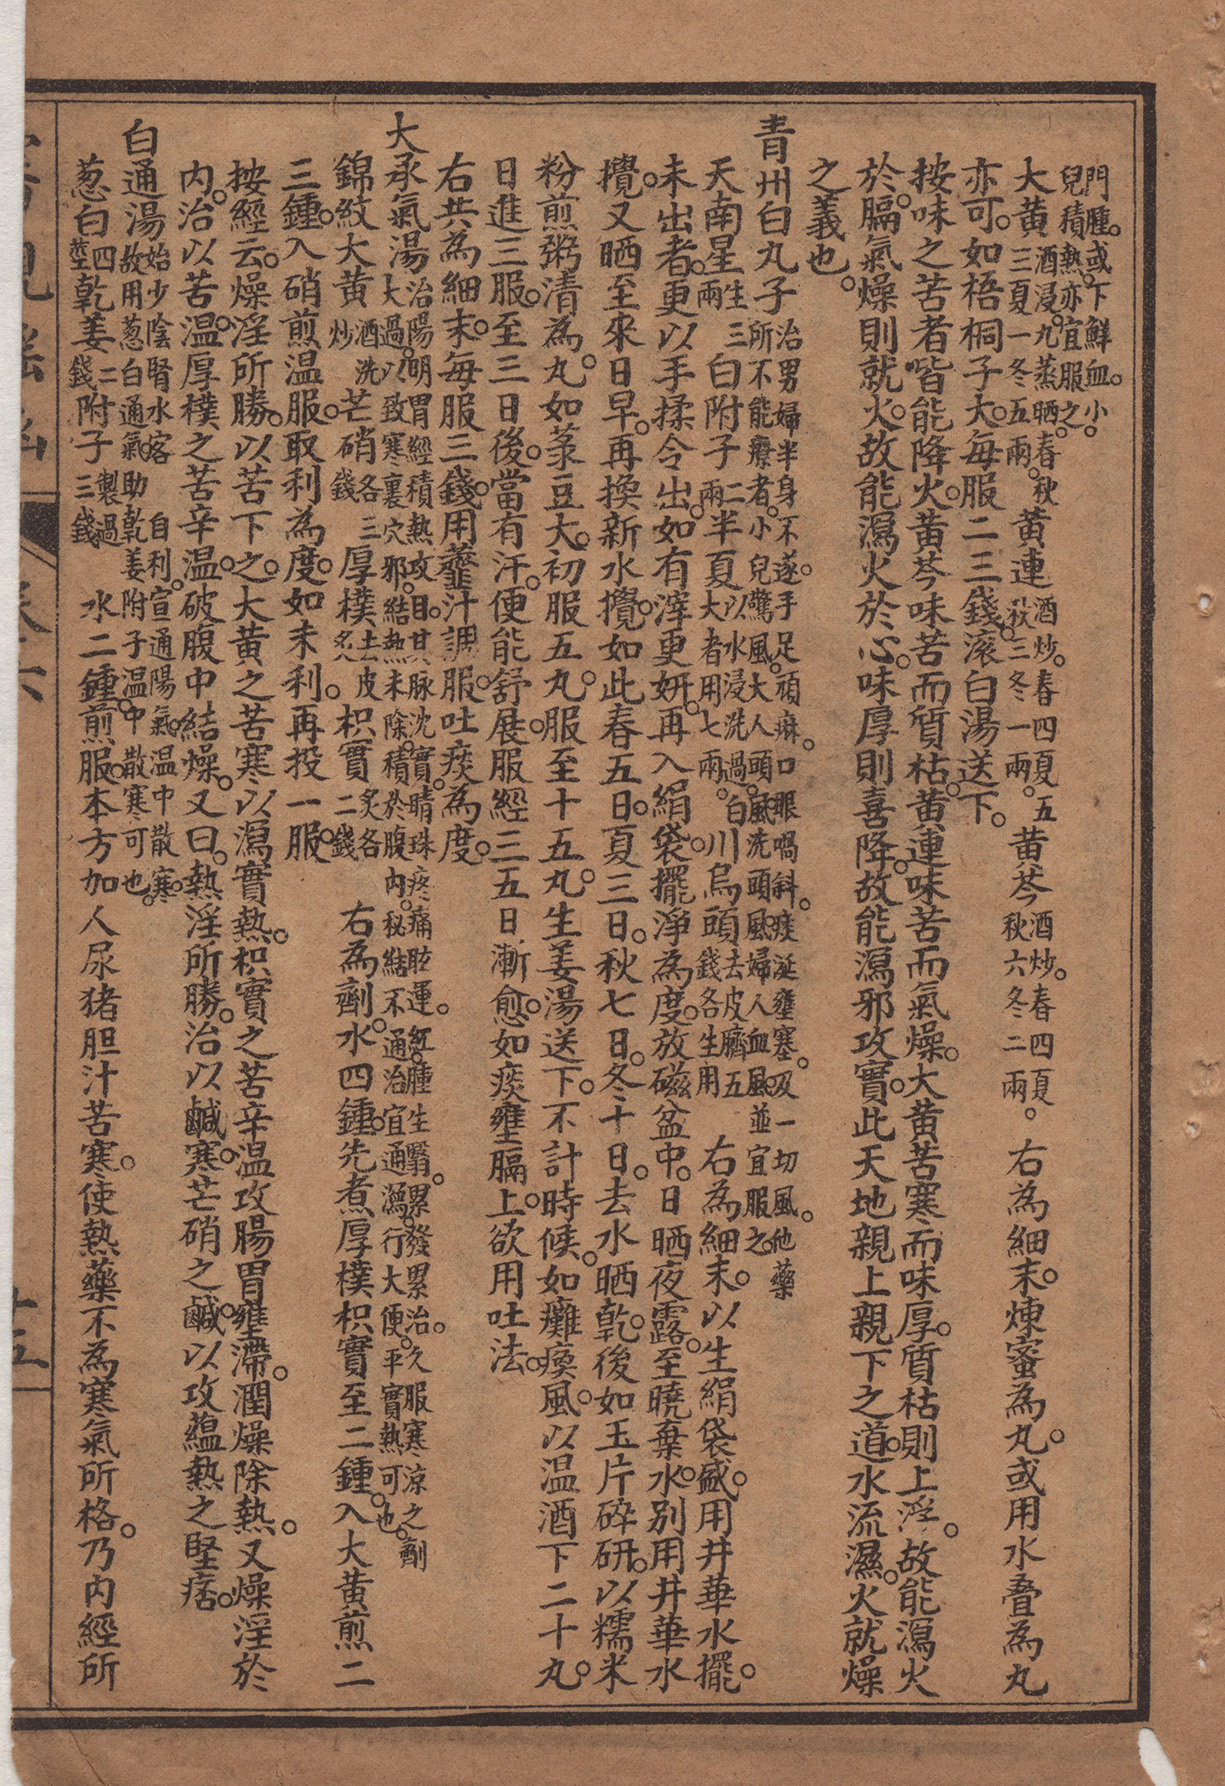 門腫。或下鮮血。小
兒積熱。亦宜服之。
大黄酒浸。九蒸晒。春秋三夏一冬五兩。黄連酒炒。春四夏五秋三冬一兩。黄芩酒炒。春四夏秋六冬二兩。右為細末。煉蜜為丸。或用水叠為丸
亦可。如梧桐子大。每服二三錢。滚白湯送下。
按味之苦者。皆能降火。黄芩味苦而質枯。黄連味苦而氣燥。大黄苦寒而味厚。質枯則上浮。故能瀉火
於膈。氣燥則就火。故能瀉火於心。味厚則喜降。故能瀉邪攻實。此天地親上親下之道。水流濕。火就燥
之義也。
青州白丸子治男婦半身不遂。手足頑麻。口眼喎斜。痰涎壅塞。及一切風。他藥所不能療者。小兒驚風。大人頭風。洗頭風。婦人血風。並宜服之。
天南星生三兩白附子二兩半夏以水浸洗過。白大者用七兩。川烏頭去皮臍五錢各生用右為細末。以生絹袋盛。用井華水擺。
未出者。更以手揉令出。如有滓更妍。再入絹袋。擺淨為度。放磁盆中。日晒夜露。至曉棄水。别用井華水
攪。又晒至來日早。再換新水攪。如此春五日。夏三日。秋七日。冬十日。去水晒乾。後如玉片碎研。以糯米
粉煎粥清為丸。如菉豆大。初服五丸。服至十五丸。生姜湯送下。不計時候。如癱瘓風。以温酒下二十丸。
日進三服。至三日後。當有汗。便能舒展。服經三五日漸愈。如痰壅膈上。欲用吐法。
右共為細末。每服三錢。用虀汁調服。吐痰為度。
大承氣湯治陽明胃經積熱攻目。甘其脉沈實。睛珠疼痛眩運。紅腫生翳。累發累治。久服寒凉之劑大過。以致寒裏穴邪。結熱未除。積於腹内。秘結不通。治宜通瀉。行大便。平實熱可也。
錦紋大黄酒洗炒芒硝各三錢厚樸去皮炙枳實炙各二錢右為劑。水四鍾。先煮厚樸枳實至二鍾。入大黄煎二
三鍾。入硝煎温服。取利為度。如未利。再投一服。
按經云。燥淫所勝。以苦下之。大黄之苦寒以瀉實熱。枳實之苦辛温攻腸胃壅滯。潤燥除熱。又燥淫於
内。治以苦温。厚樸之苦辛温。破腹中結燥。又曰。熱淫所勝。治以鹹寒。芒硝之鹹。以攻蘊熱之堅痞。
白通湯始少陰腎水客自利。宣通陽氣。温中散寒。故用葱白通氣。助乾姜附子温中散寒可也。
葱白四莖乾姜二錢附子製過三錢水二鍾。煎服。本方加人尿猪胆汁苦寒。使熱藥不為寒氣所格。乃内經所